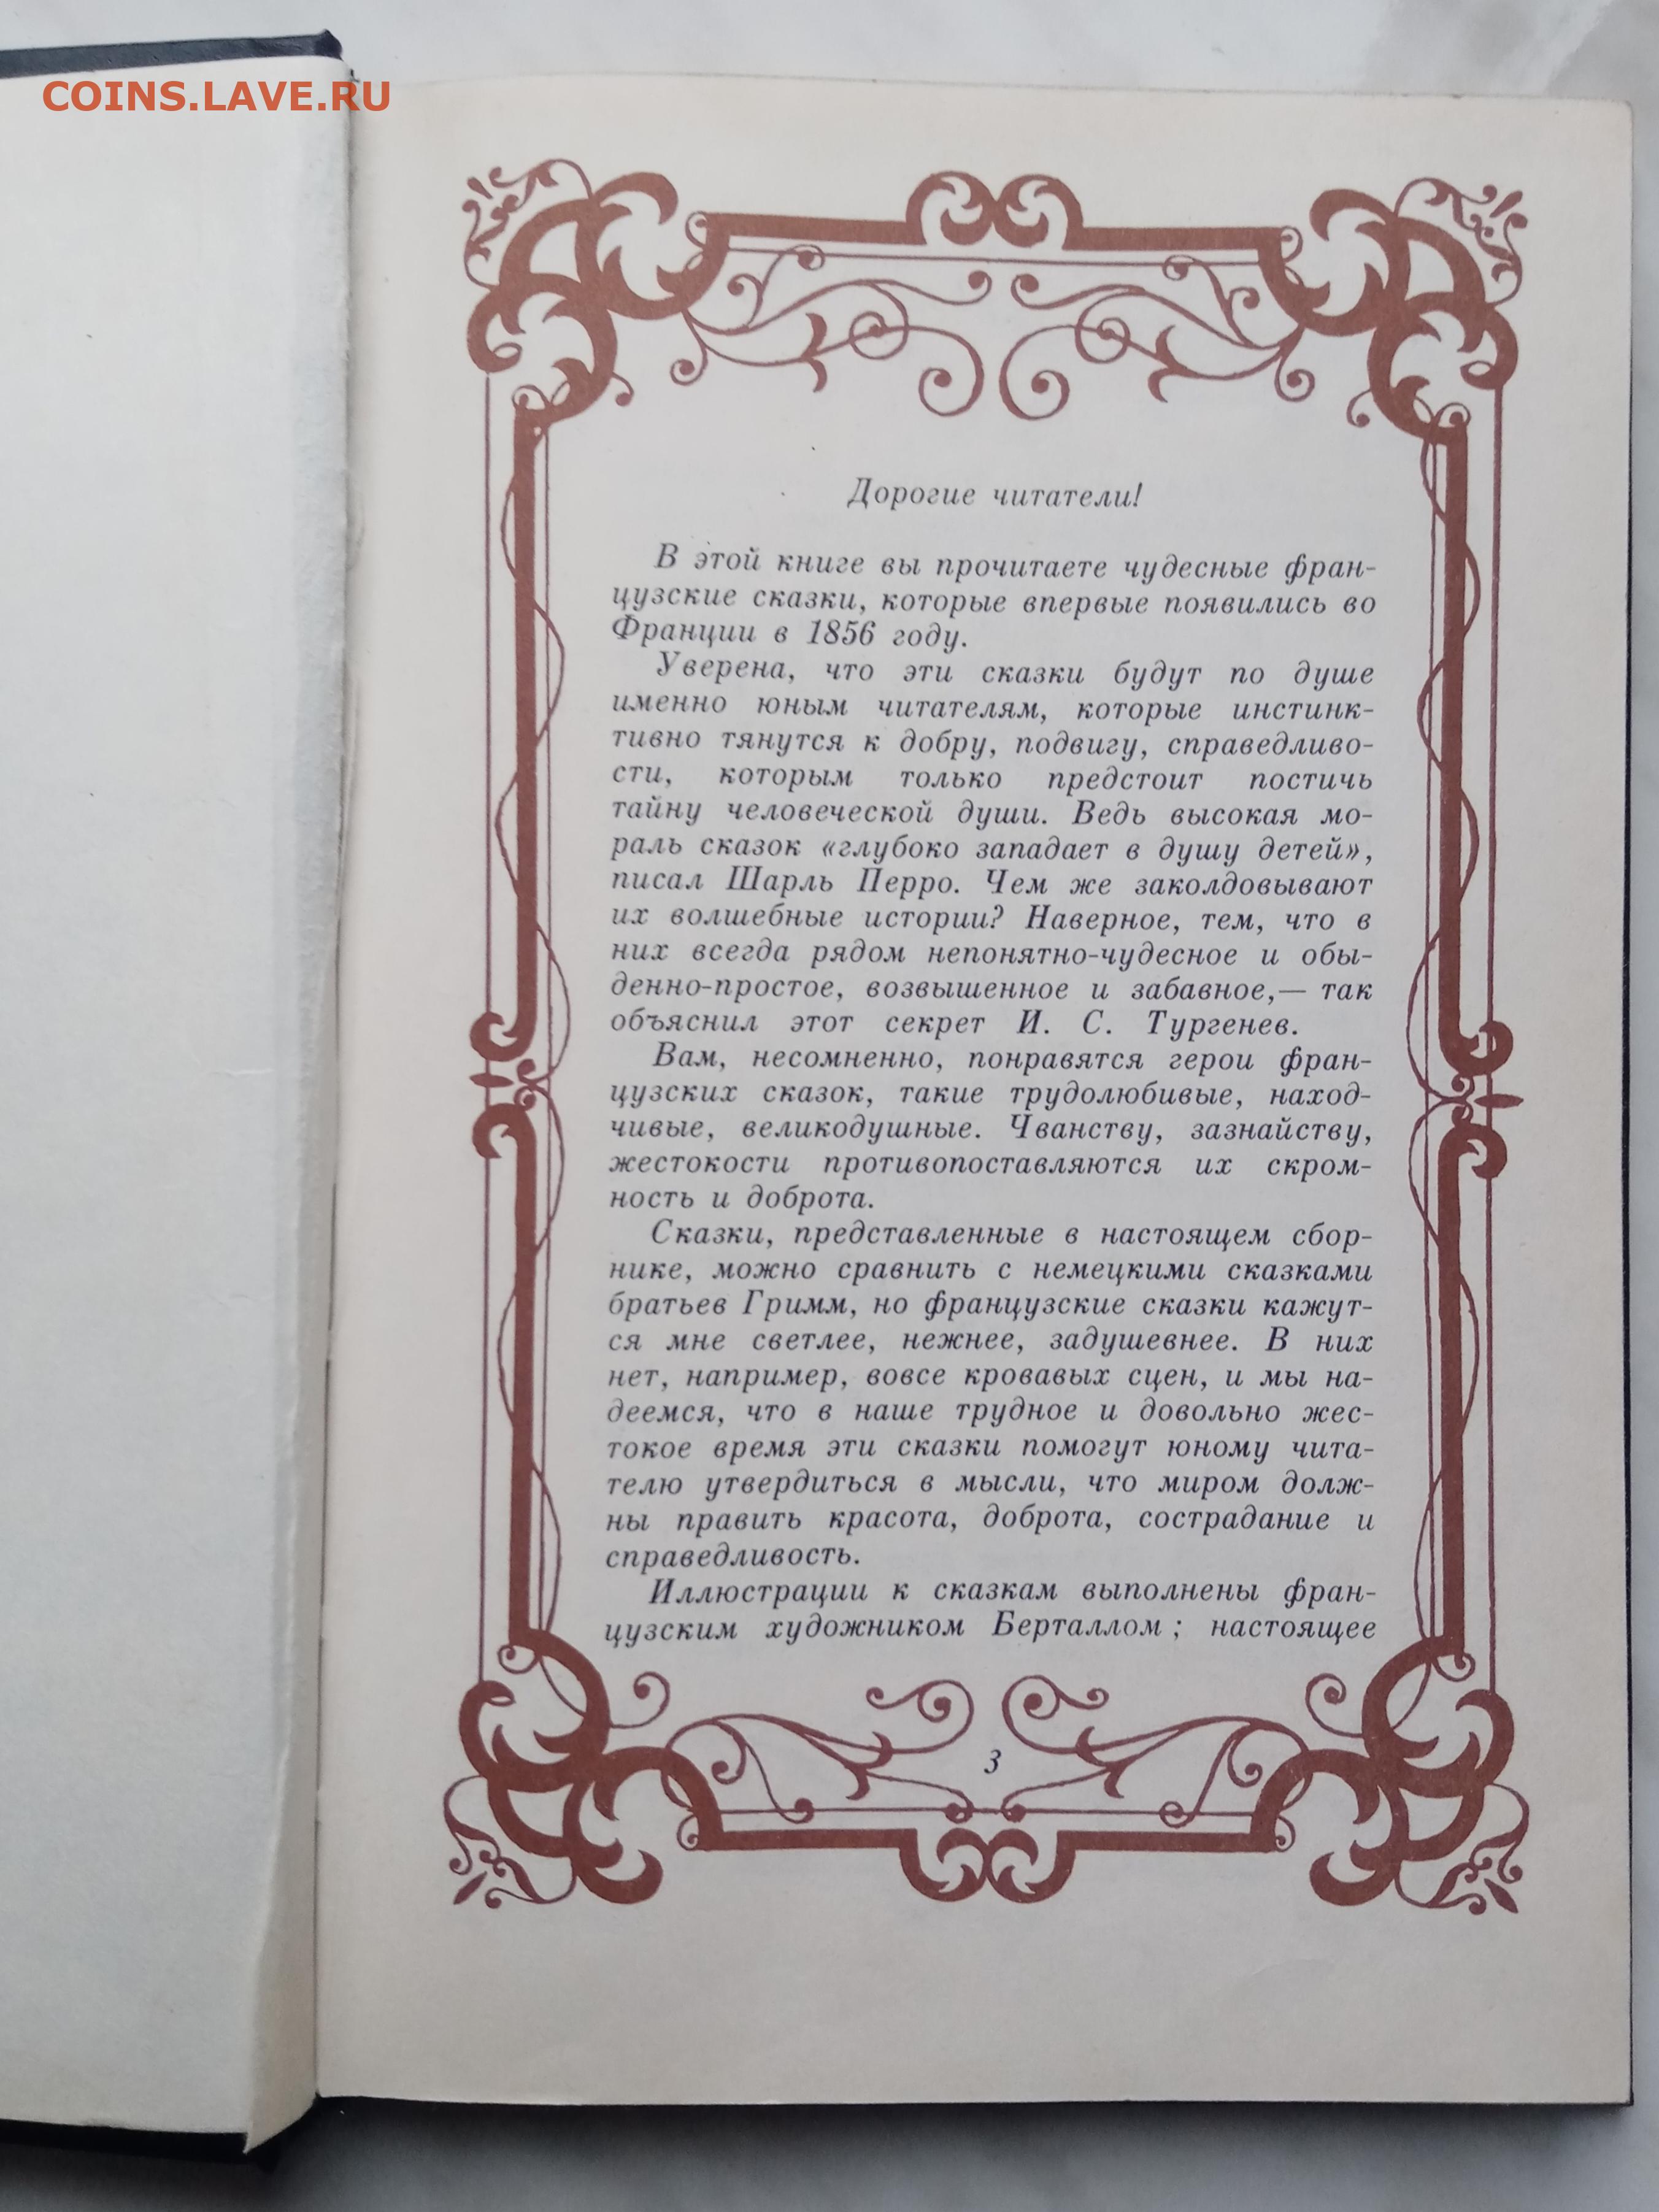 COINS.LAVE.RU
Дорогие читатели!
В этой книге вы прочитаете чудесные фран-
цузские сказки, которые впервые появились во
Франции в 1856 году.
Уверена, что эти сказки будут по душе
именно юным читателям, которые инстинк-
тивно тянутся к добру, подвигу, справедливо-
сти, которым только предстоит постичь
тайну человеческой души. Ведь высокая мо-
раль сказок «глубоко западает в душу детей»,
писал Шарль Перро. Чем же заколдовывают
их волшебные истории? Наверное, тем, что в
них всегда рядом непонятно-чудесное и обы-
денно-простое, возвышенное и забавное,— так
объяснил этот секрет И. С. Тургенев.
Вам, несомненно, понравятся герои фран-
цузских сказок, такие трудолюбивые, наход-
чивые, великодушные. Чванству, зазнайству,
жестокости противопоставляются их скром-
ность и доброта.
Сказки, представленные в настоящем сбор-
нике, можно сравнить с немецкими сказками
братьев Гримм, но французские сказки кажут-
ся мне светлее, нежнее, задушевнее. В них
нет, например, вовсе кровавых сцен, и мы на-
деемся, что в наше трудное и довольно жес-
токое время эти сказки помогут юному чита-
телю утвердиться в мысли, что миром долж-
ны править красота, доброта, сострадание и
справедливость.
Иллюстрации к сказкам выполнены фран-
цузским художником Берталлом; настоящее
3